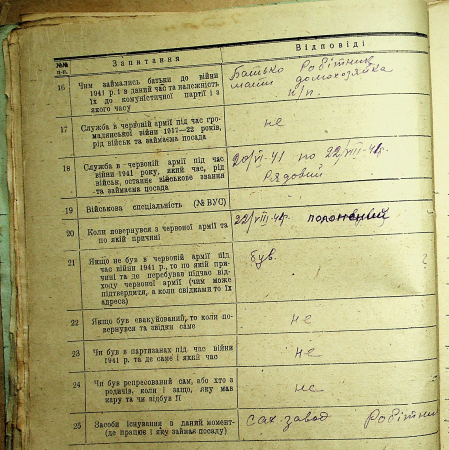 №№ п-п.
Запитання
Відповіді
16
Чим займались батьки до війни
1941 р. і в даний час та належність
їх до комуністичної партії і з
якого часу
Батько Робітник
мати домохозяйка
п/п.
17
Служба в червоній армії під час гро-
мадянської війни 1917—22 років,
рід військ та займаєма посада
не
18
Служба в червоній армії під час
війни 1941 року, який час, рід
військ, останнє військове звання
та займаєма посада
20/VI-41 по 22/VIII-41.
Рядовий
19
Військова спеціальність (№ ВУС)
20
Коли повернувся з червоної армії та
по якій причині
22/VIII-41. полонений
21
Якщо не був в червоній армії під
час війни 1941 р., то по якій при-
чині та де перебував підчас від-
ходу червоної армії (чим може
підтвердити, а коли свідками то їх
адреса)
був.
?
22
Якщо був евакуйований, то коли по-
вернувся та звідки саме
не
23
Чи був в партизанах під час війни
1941 р. та де саме і який час
не
24
Чи був репресований сам, або хто з
родичів, коли і защо, яку мав
кару та чи відбув її
не
25
Засоби існування з даний момент-
(де працює і яку займає посаду)
Сах. завод Робітник